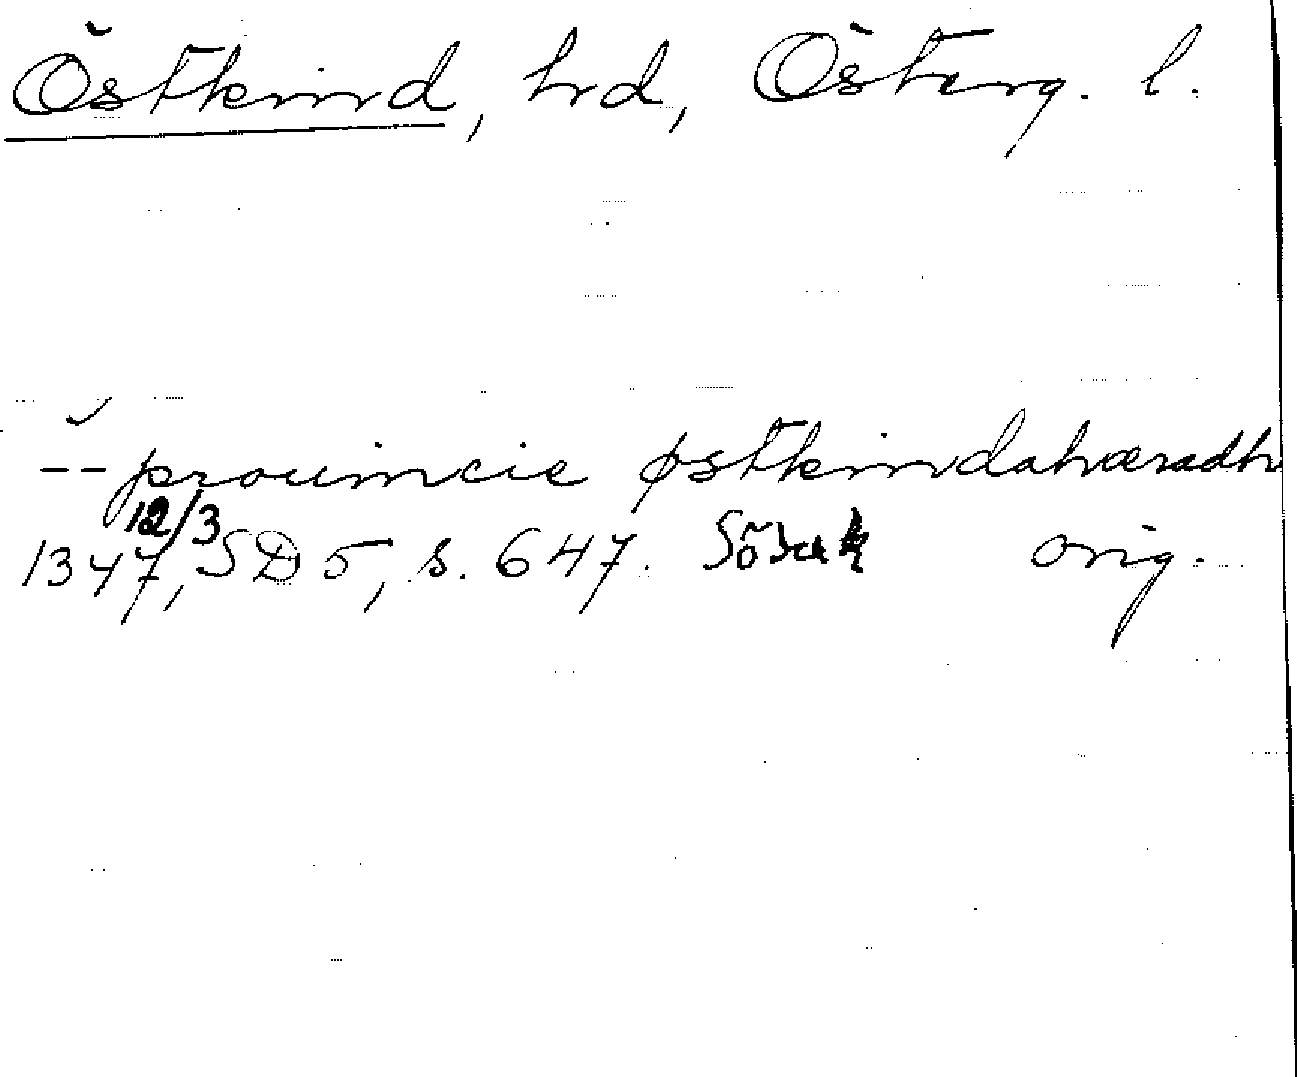 Östkind, hrd, Österg. l.
-- prouincie østkindahæradh
12/3
1347, SD 5, s. 647. orig.